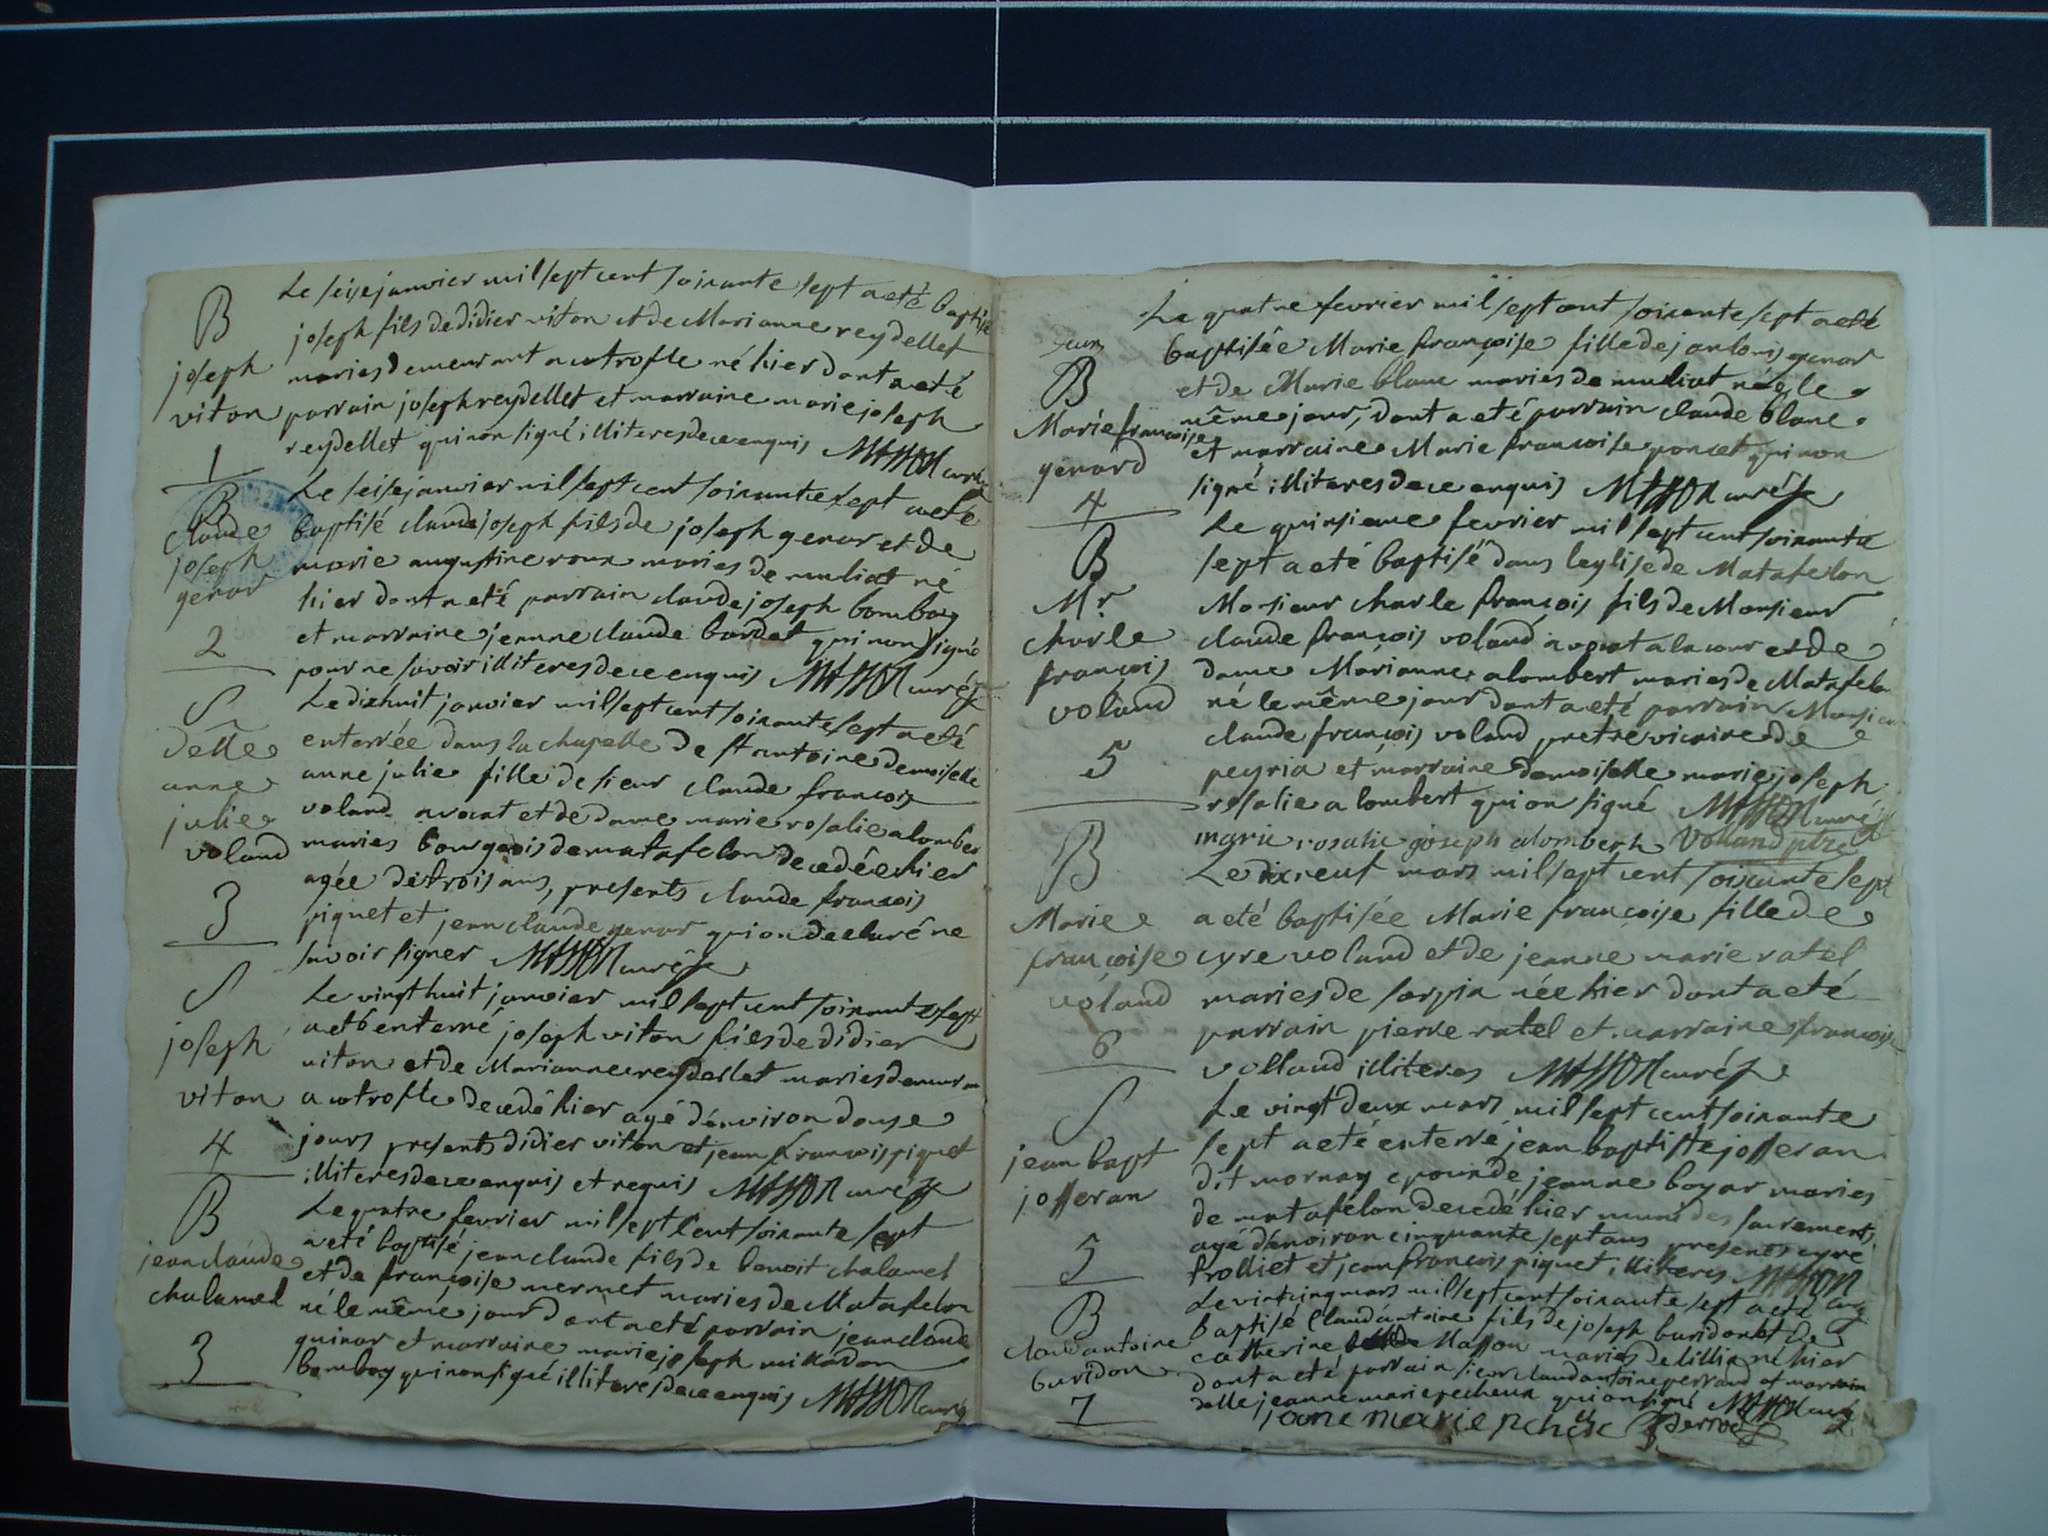 B
joseph
viton
1
Le seise janvier mil sept cent soixante sept a eté baptisé
joseph fils de didier viton et de Marianne reydellet
mariés demeurant a cotrofle né hier dont a eté
parrain joseph reydellet et marraine marie joseph
reydellet qui non signé illiteres de ce enquis MASSON curé
B
claude
joseph
genar
2
Le seise janvier mil sept cent soixante sept a eté
baptisé claude joseph fils de joseph genar et de
marie augustine roux mariés de muliat né
hier dont a eté parrain claude joseph bomboy
et marraine jeanne claude bardet qui non signé
pour ne savoir illiteres de ce enquis MASSON curé
S
delle
anne
julie
voland
3
Le dixhuit janvier mil sept cent soixante sept a eté
enterrée dans la chapelle de st antoine demoiselle
anne julie fille de sieur claude françois
voland avocat et de dame marie rosalie alomber
mariés bourgeois de matafelon decedée hier
agée de trois ans, presents claude françois
piquet et jean claude genar qui on declaré ne
savoir signer MASSON curé
S
joseph
viton
4
Le vingt huit janvier mil sept cent soixante sept
a eté enterré joseph viton fils de didier
viton et de Marianne reydellet mariés demeuran
a cotrofle decedé hier agé d'environ douse
jours presents didier viton et jean françois piquet
illiteres de ce enquis et requis MASSON curé
B
jean claude
chalamel
3
Le quatre fevrier mil sept cent soixante sept
a eté baptisé jean claude fils de benoit chalamel
et de françoise mermet mariés de Matafelon
né le même jour dont a eté parrain jean claude
guinar et marraine marie joseph
bomboy qui non signé illiteres de ce enquis MASSON curé
B
Marie françoise
genard
4
Le quatre fevrier mil sept cent soixante sept a eté
baptisée Marie françoise fille de jan louis genar
et de Marie blanc mariés de muliat née le
même jour, dont a eté parrain claude blanc
et marraine Marie françoise poncet qui non
signé illiteres de ce enquis MASSON curé
B
Mr
charle
françois
voland
5
Le quinsieme fevrier mil sept cent soixante
sept a eté baptisé dans leglise de Matafelon
Monsieur charle françois fils de Monsieur
claude françois voland avocat a la cour et de
dame Marianne alombert mariés de Matafelon
né le même jour dont a eté parrain Monsieur
claude françois voland pretre vicaire de
peyria et marraine demoiselle marie joseph
rosalie alombert qui on signé MASSON curé
marie rosalie goseph alomberh Volland ptre
B
Marie
françoise
voland
6
Le dix neuf mars mil sept cent soixante sept
a eté baptisée Marie françoise fille de
cyre voland et de jeanne marie ratel
mariés de sorpia née hier dont a eté
parrain pierre ratel et marraine françoise
volland illiteres MASSON curé
S
jean bapt
josseran
5
Le vingt deux mars mil sept cent soixante
sept a eté enterré jean baptiste josseran
dit mornay epoux de jeanne boyar mariés
de matafelon decedé hier muni des sacrements
agé d'environ cinquante sept ans presents cyre
frolliet et jean françois piquet illiteres MASSON
curé
B
claud antoine
buridon
7
Le vint cinq mars mil sept cent soixante sept a eté
baptisé Claud antoine fils de joseph buridon et de
catherine Masson mariés de lillia né hier
dont a eté parrain sieur claud antoine perraud et marraine
delle jeanne marie pecheux qui on signé MASSON curé
jeane marie